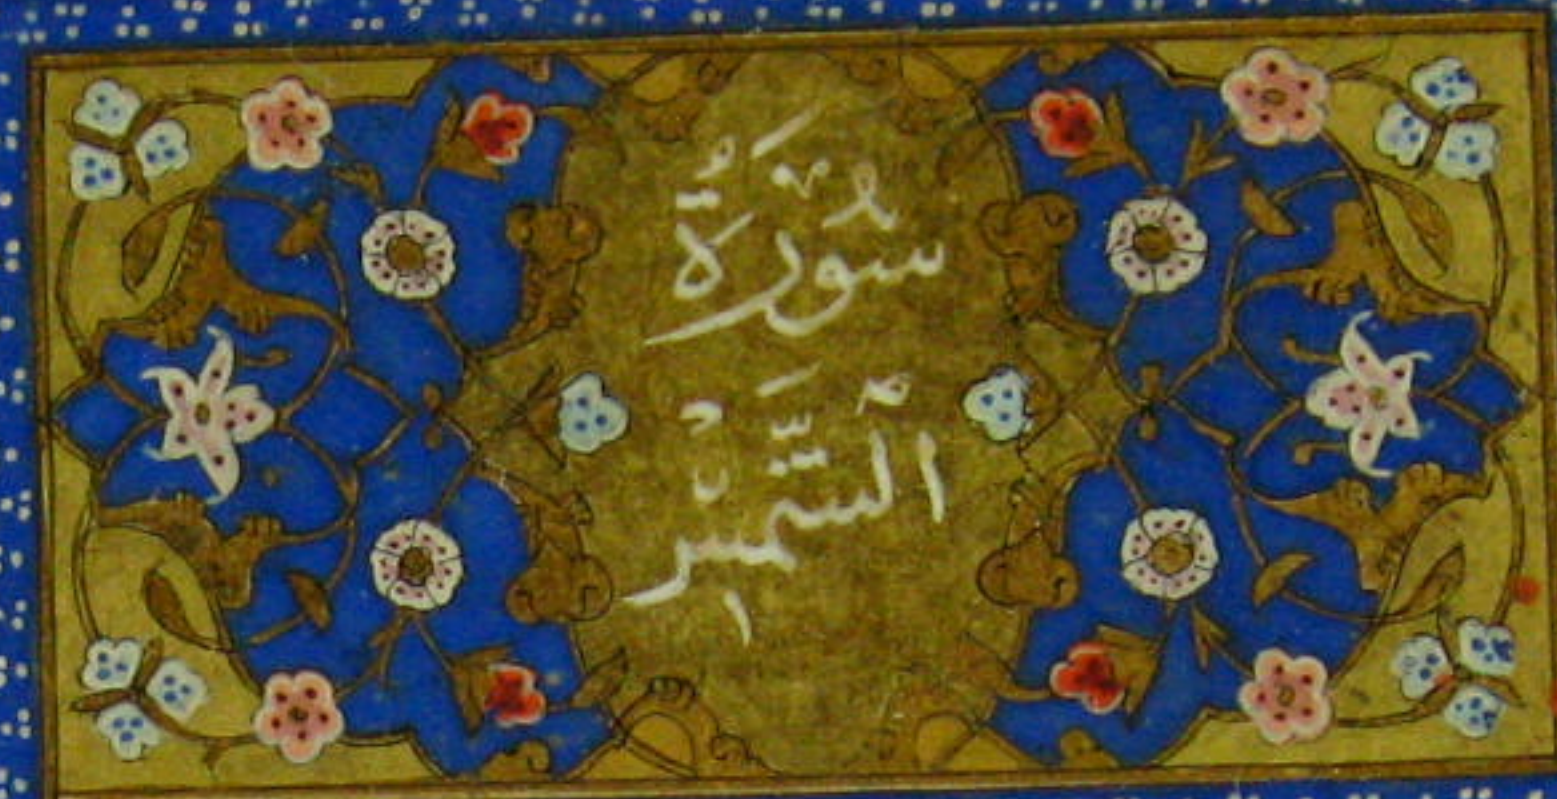 سُورَةُ
الشَّمْسِ